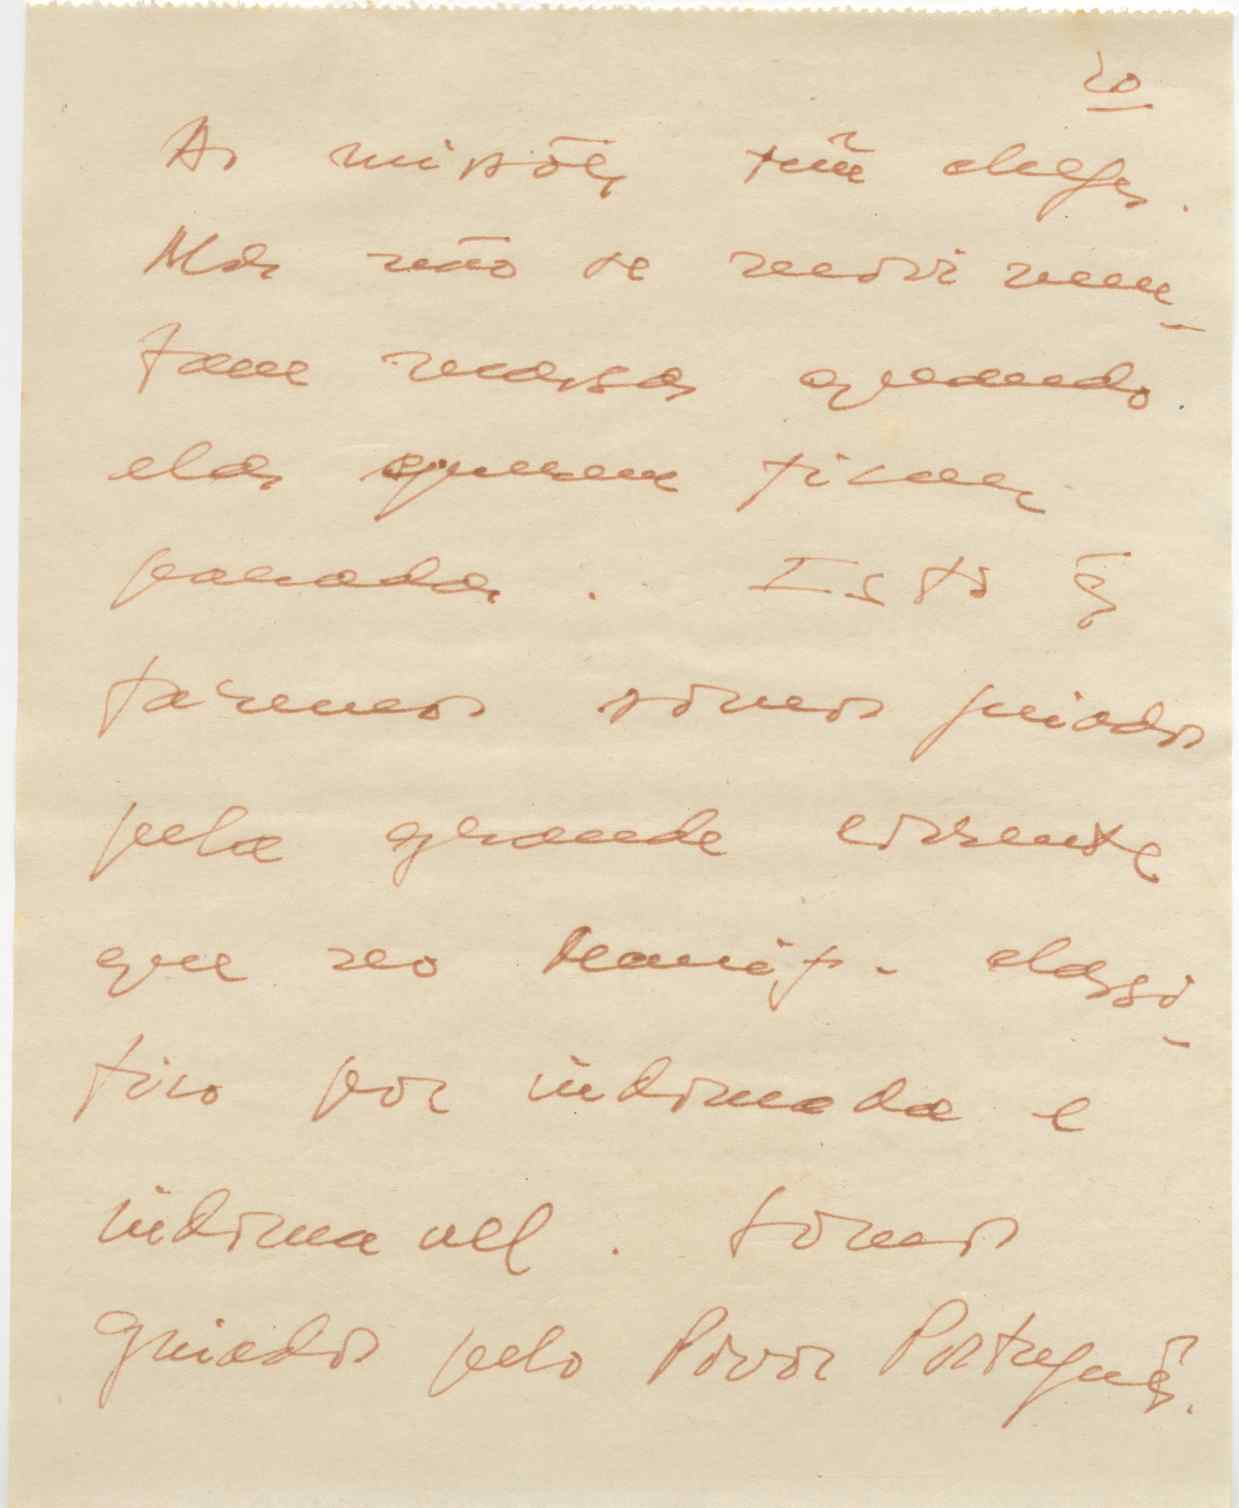 20
As missões têm chefes.
Mas não se movimen-
tam massas quando
elas querem ficar
paradas. Isto é
fazemos somos guiados
pela grande corrente
que no manif. classi-
fico por indomada e
indomavel. Somos
guiados pelo Povo Português.